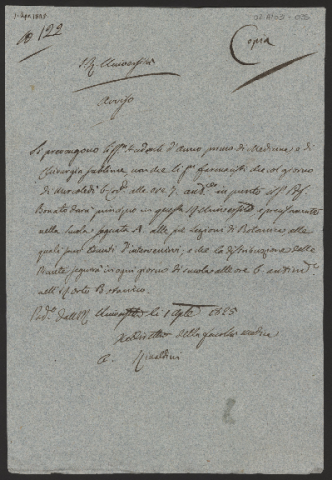 1. Apr. 1825
N 122
Copia
I. R. Università
Avviso
Si prevengono li SS.ri studenti d'anno primo di Medicina e di
Chirurgia sublime, non che li SS.ri farmacisti che col giorno
di Mercoledì 6 corr.e alle ore 7 antm.e in punto il S.r Prof.
Bonato darà principio in questa I. R. Università, e precisamente
nella Scuola segnata B. alle sue lezioni di Botanica alle
quali sono tenuti d'intervenire; e che la distribuzione delle
Piante seguirà in ogni giorno di scuola alle ore 6 antimd.e
nell'Orto Botanico.
Pad.a dall'I. R. Università li 1 Aple 1825
Il Direttore della facoltà medica
Rinaldini